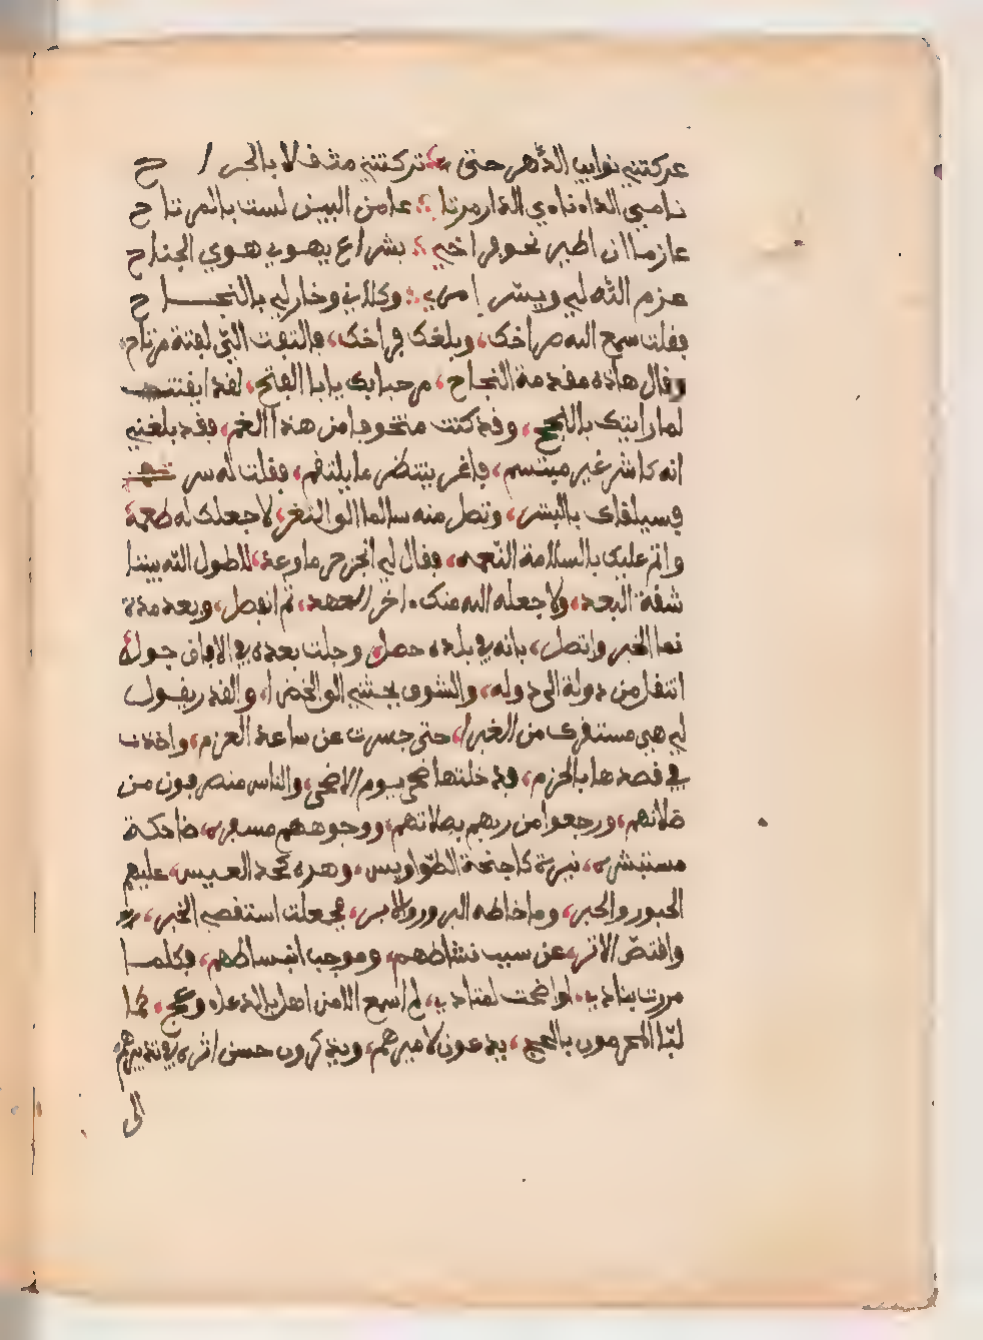 عركتني نوايب الدهر حتى ؞ تركتني مثقلا بالجرا ح
نامي الداء نادي الدار مرتا ؞ عا من البين لست بالمرتاح
عازما ان اطير نحو فراخي ؞ بشراع يهوي هوي الجناح
عزم الله لي ويسر امري ؞ وكلاني وخار لي بالنجاح
فقلت سمع الله صراخك، وبلغك فراخك، فالتفت الي لفتة مرتاح،
وقال هاذه مقدمة النجاح، مرحبا بك يابا الفتح، لقد ايقنت
لما رايتك بالنجح، وقد كنت متخوفا من هذا الغم، فقد بلغني
انه كاشر غير مبتسم، فاغر ينتظر ما يلتقم، فقلت له سر
فسيلقاك بالبشر، وتصل منه سالما الى الثغر، لا جعلك له طعمة
واتم عليك بالسلامة النعمه، فقال لي انجز حر ما وعد، لا طول الله بيننا
شقة البعد، ولا جعله الله منك اخر العهد، ثم انفصل، وبعد مدة
نما الخبر واتصل، بانه في بلده حصل، وجلت بعده في الافاق جولة
انتقل من دولة الى دوله، والشوق يحثني الى الخضرا، والقدر يقول
لي هي مستقرك من الغبرا، حتى حسرت عن ساعد العزم، واخذت
في قصدها بالحزم، فدخلتها ضحى يوم الاضحى، والناس منصرفون من
صلاتهم، ورجعوا من ربهم بصلاتهم، ووجوههم مسفره، ضاحكة
مستبشره، كاجنحة الطواويس، عليهم
الحبور والحبر، فجعلت استفصي الخبر،
واقتص الاثر، عن سبب نشاطهم، وموجب انبساطهم، فكلما
مررت بنادي، او اضحت لمنادي، لم اسمع الا من اهل بالدعاء وعج، كما
لبا المحرمون بالحج، يدعون لاميرهم، ويذكرون حسن اثره في تدبيرهم
الى